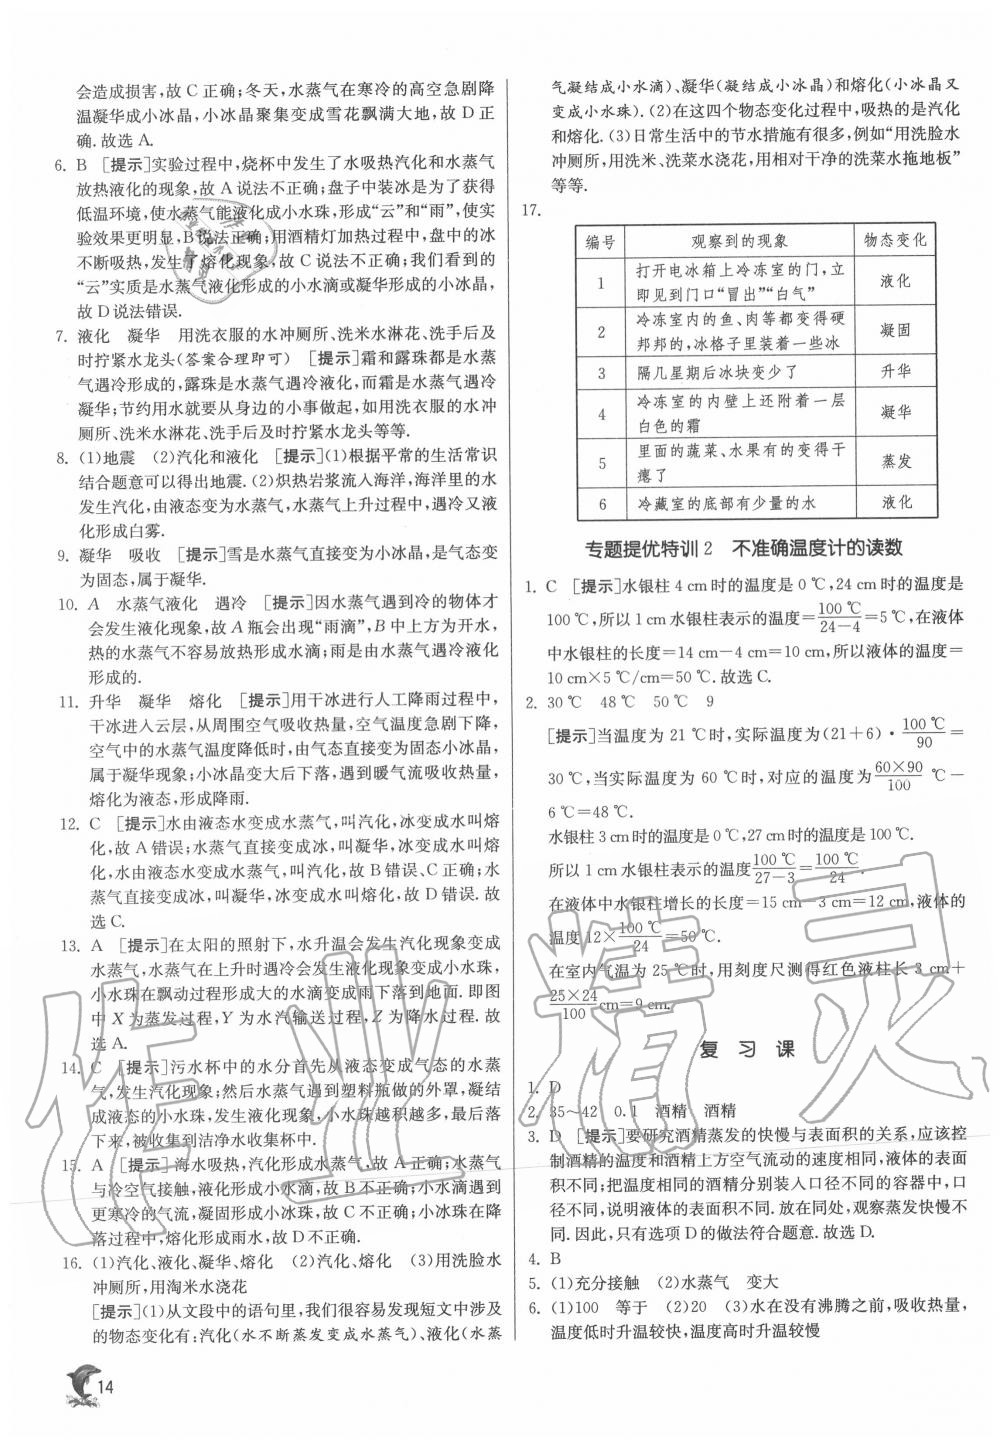 会造成损害,故 C 正确;冬天,水蒸气在寒冷的高空急剧降
温凝华成小冰晶,小冰晶聚集变成雪花飘满大地,故 D 正
确.故选 A.
6. B [提示]实验过程中,烧杯中发生了水吸热汽化和水蒸气
放热液化的现象,故 A 说法不正确;盘子中装冰是为了获得
低温环境,使水蒸气能液化成小水珠,形成“云”和“雨”,使实
验效果更明显,B 说法正确;用酒精灯加热过程中,盘中的冰
不断吸热,发生了熔化现象,故 C 说法不正确;我们看到的
“云”实质是水蒸气液化形成的小水滴或凝华形成的小冰晶,
故 D 说法错误.
7. 液化 凝华 用洗衣服的水冲厕所、洗米水淋花、洗手后及
时拧紧水龙头(答案合理即可) [提示]霜和露珠都是水蒸
气遇冷形成的,露珠是水蒸气遇冷液化,而霜是水蒸气遇冷
凝华;节约用水就要从身边的小事做起,如用洗衣服的水冲
厕所、洗米水淋花、洗手后及时拧紧水龙头等等.
8. (1)地震 (2)汽化和液化 [提示](1)根据平常的生活常识
结合题意可以得出地震.(2)炽热岩浆流入海洋,海洋里的水
发生汽化,由液态变为水蒸气,水蒸气上升过程中,遇冷又液
化形成白雾.
9. 凝华 吸收 [提示]雪是水蒸气直接变为小冰晶,是气态变
为固态,属于凝华.
10. A 水蒸气液化 遇冷 [提示]因水蒸气遇到冷的物体才
会发生液化现象,故 A 瓶会出现“雨滴”,B 中上方为开水,
热的水蒸气不容易放热形成水滴;雨是由水蒸气遇冷液化
形成的.
11. 升华 凝华 熔化 [提示]用干冰进行人工降雨过程中,
干冰进入云层,从周围空气吸收热量,空气温度急剧下降,
空气中的水蒸气温度降低时,由气态直接变为固态小冰晶,
属于凝华现象;小冰晶变大后下落,遇到暖气流吸收热量,
熔化为液态,形成降雨.
12. C [提示]水由液态水变成水蒸气,叫汽化,冰变成水叫熔
化,故 A 错误;水蒸气直接变成冰,叫凝华,冰变成水叫熔
化,水由液态水变成水蒸气,叫汽化,故 B 错误、C 正确;水
蒸气直接变成冰,叫凝华,冰变成水叫熔化,故 D 错误.故
选 C.
13. A [提示]在太阳的照射下,水升温会发生汽化现象变成
水蒸气,水蒸气在上升时遇冷会发生液化现象变成小水珠,
小水珠在飘动过程形成大的水滴变成雨下落到地面.即图
中 X 为蒸发过程,Y 为水汽输送过程,Z 为降水过程.故
选 A.
14. C [提示]污水杯中的水分首先从液态变成气态的水蒸
气,发生汽化现象;然后水蒸气遇到塑料瓶做的外罩,凝结
成液态的小水珠,发生液化现象,小水珠越积越多,最后落
下,被收集到洁净水收集杯中.
15. A [提示]海水吸热,汽化形成水蒸气,故 A 正确;水蒸气
与冷空气接触,液化形成小水滴,故 B 不正确;小水滴遇到
更寒冷的气流,凝固形成小冰珠,故 C 不正确;小冰珠在降
落过程中,熔化形成雨水,故 D 不正确.
16. (1)汽化、液化、凝华、熔化 (2)汽化、熔化 (3)用洗脸水
冲厕所,用淘米水浇花
[提示](1)从文段中的语句里,我们很容易发现短文中涉及
的物态变化有:汽化(水不断蒸发变成水蒸气)、液化(水蒸
14
气凝结成小水滴)、凝华(凝结成小冰晶)和熔化(小冰晶又
变成小水珠).(2)在这四个物态变化过程中,吸热的是汽化
和熔化.(3)日常生活中的节水措施有很多,例如“用洗脸水
冲厕所,用洗米、洗菜水浇花,用相对干净的洗菜水拖地板”
等等.
17.
编号 观察到的现象 物态变化
1 打开电冰箱上冷冻室的门,立
即见到门口“冒出”“白气” 液化
2 冷冻室内的鱼、肉等都变得硬
邦邦的,冰格子里装着一些冰 凝固
3 隔几星期后冰块变少了 升华
4 冷冻室的内壁上还附着一层
白色的霜 凝华
5 里面的蔬菜、水果有的变得干
瘪了 蒸发
6 冷藏室的底部有少量的水 液化
专题提优特训 2 不准确温度计的读数
1. C [提示]水银柱 4 cm 时的温度是 0 ℃,24 cm 时的温度是
100 ℃,所以 1 cm 水银柱表示的温度=100 ℃/(24-4)=5 ℃,在液体
中水银柱的长度=14 cm-4 cm=10 cm,所以液体的温度=
10 cm×5 ℃/cm=50 ℃.故选 C.
2. 30 ℃ 48 ℃ 50 ℃ 9
[提示]当温度为 21 ℃时,实际温度为(21+6)·100 ℃/90=
30 ℃,当实际温度为 60 ℃时,对应的温度为60×90/100 ℃-
6 ℃=48 ℃.
水银柱 3 cm 时的温度是 0 ℃,27 cm 时的温度是 100 ℃.
所以 1 cm 水银柱表示的温度100 ℃/(27-3)=100 ℃/24.
在液体中水银柱增长的长度=15 cm-3 cm=12 cm,液体的
温度 12×100 ℃/24=50 ℃.
在室内气温为 25 ℃时,用刻度尺测得红色液柱长 3 cm+
25×24/100 cm=9 cm.
复习课
1. D
2. 35~42 0.1 酒精 酒精
3. D [提示]要研究酒精蒸发的快慢与表面积的关系,应该控
制酒精的温度和酒精上方空气流动的速度相同,液体的表面
积不同;把温度相同的酒精分别装入口径不同的容器中,口
径不同,说明液体的表面积不同.放在同处,观察蒸发快慢不
同.因此,只有选项 D 的做法符合题意.故选 D.
4. B
5. (1)充分接触 (2)水蒸气 变大
6. (1)100 等于 (2)20 (3)水在没有沸腾之前,吸收热量,
温度低时升温较快,温度高时升温较慢
作业精灵